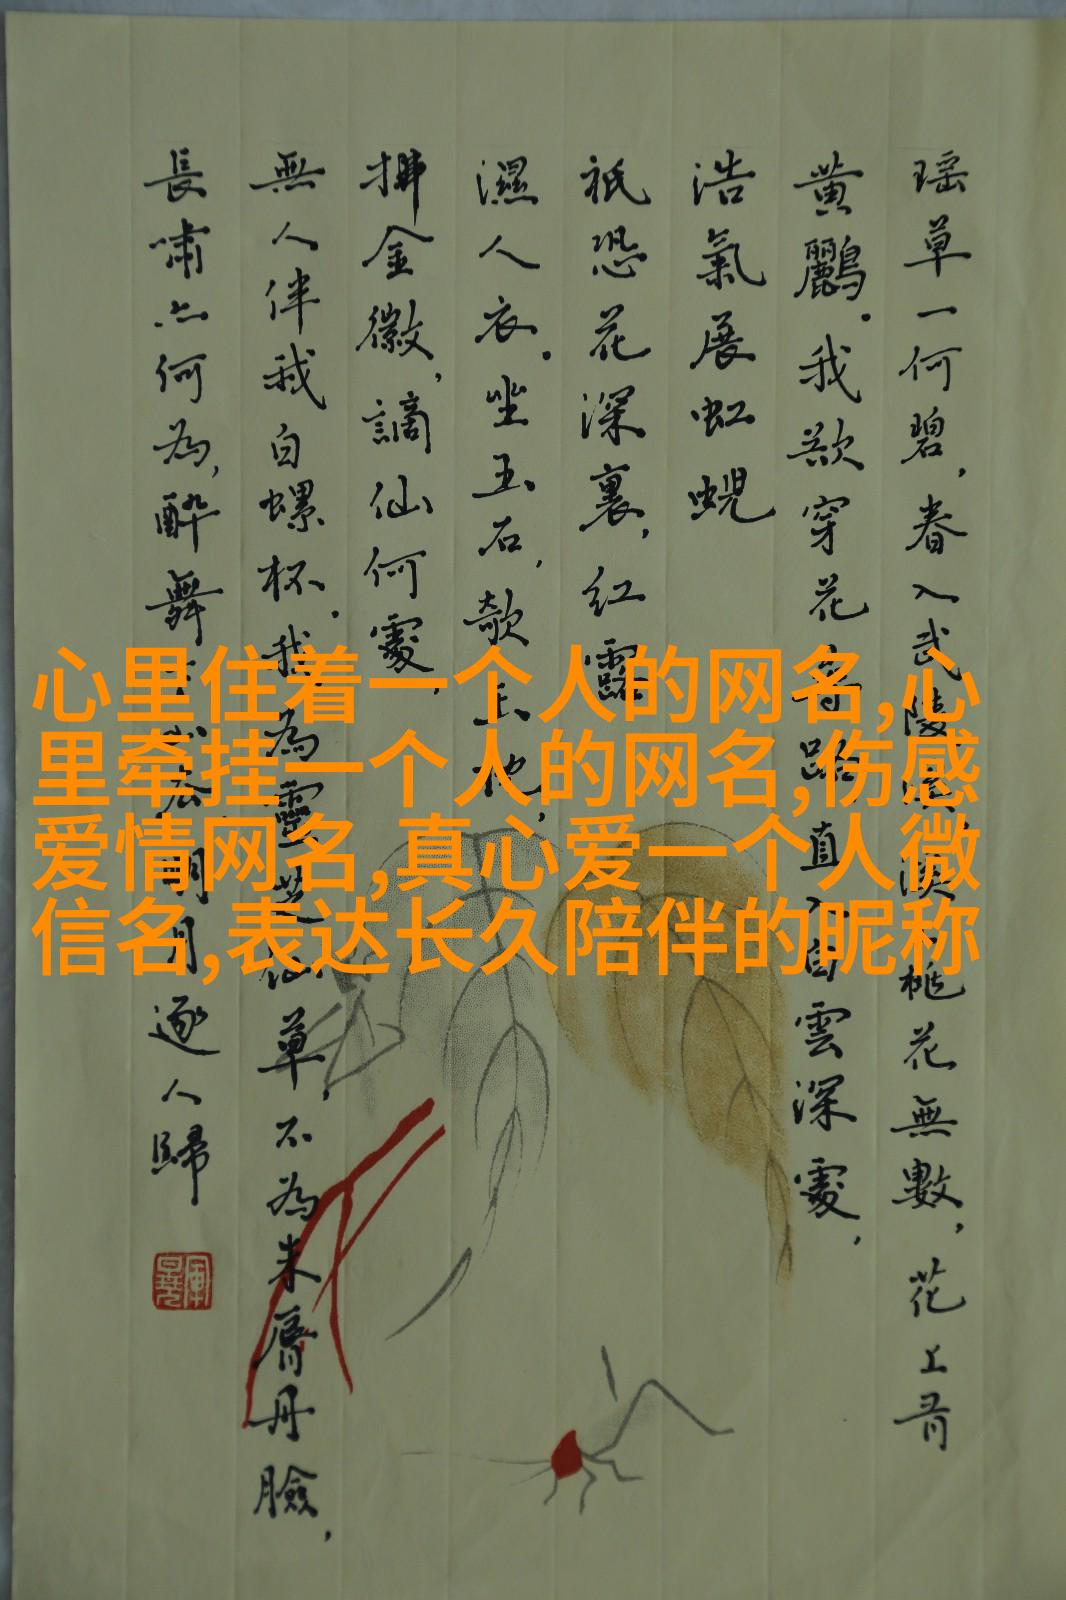 瑶草一何碧,春入武陵溪溪上桃花無數,花上有
黄鸝。我欲穿花尋路直入白雲深處,
浩氣展虹蜺
祇恐花深裏,紅露
濕人衣。坐玉石,欹玉枕,
拂金徽,謫仙何處,
無人伴我白螺杯。我為靈芝仙草,不為朱脣丹臉,
長嘯亦何為,醉舞下山去明月逐人歸
心里住着一个人的网名,心
里牵挂一个人的网名,伤感
爱情网名,真心爱一个人微
信名,表达长久陪伴的昵称